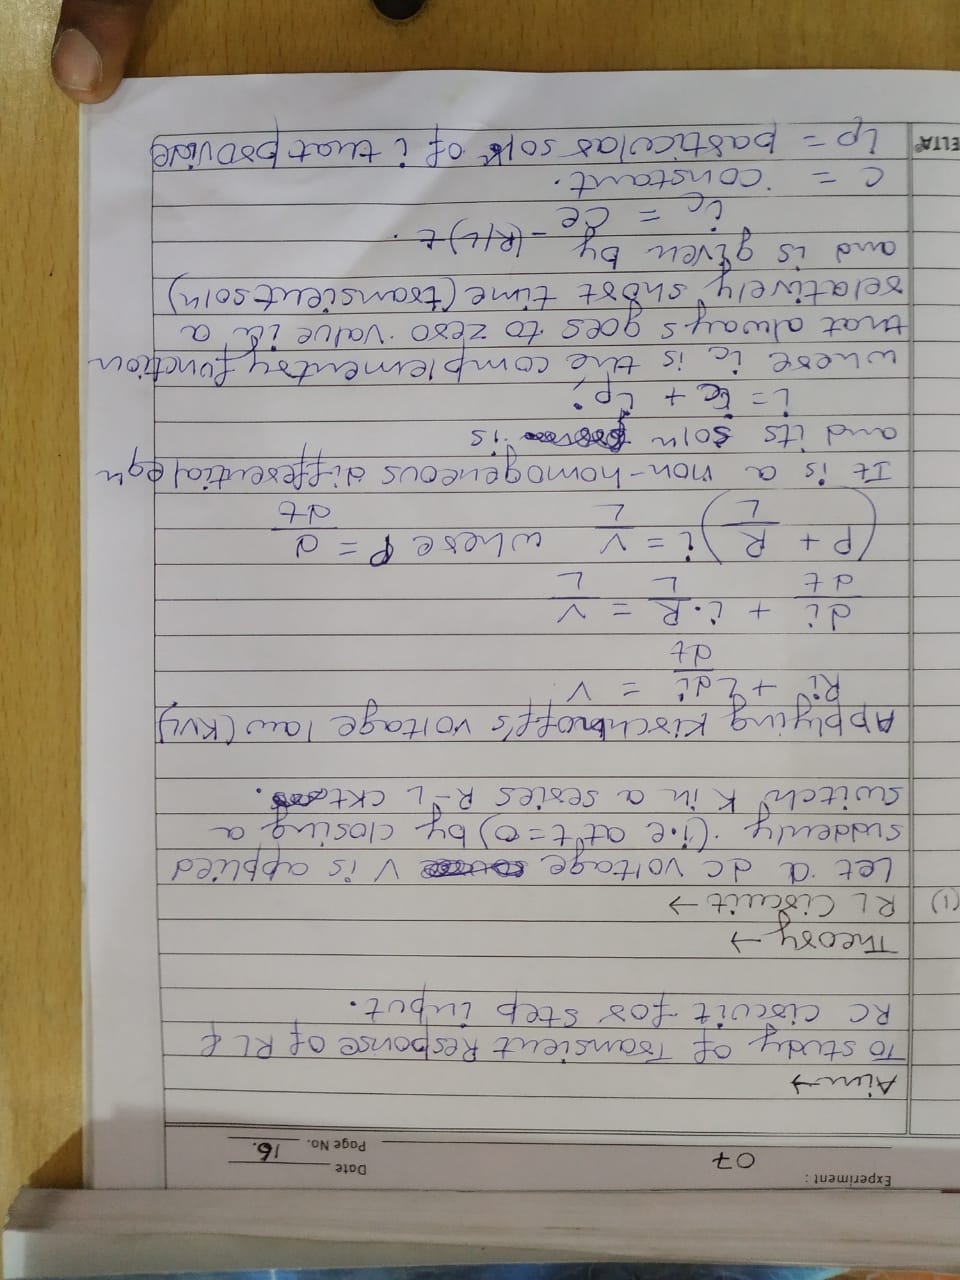 Experiment :
07
Date
Page No. 16.
Aim →
To study of Transient Response of RL &
RC circuit for step input.
Theory →
(1) RL Circuit →
Let a dc voltage V is applied
suddenly (i.e at t=0) by closing a
switch K in a series R-L ckt.
Applying Kirchhoff's voltage law (KVL)
Ri + L di/dt = V
di/dt + i.R/L = V/L
(P + R/L) i = V/L where P = d/dt
It is a non-homogeneous differential eqn
and its soln is
i = ic + ip;
where ic is the complementry function
that always goes to zero value in a
relatively short time (transient soln)
and is given by
ic = ce^-(R/L)t.
c = constant.
ip = particular soln of i that provide
ELTA®